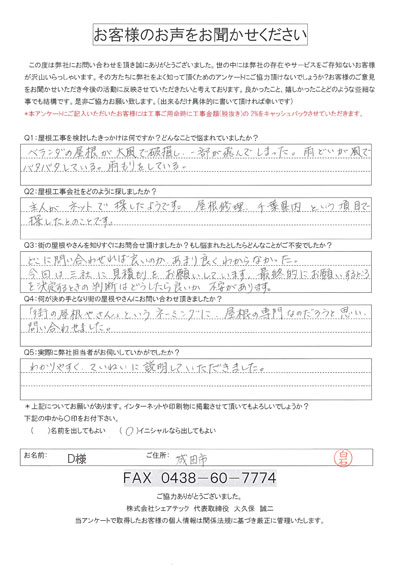 お客様のお声をお聞かせください
この度は弊社にお問い合わせを頂き誠にありがとうございました。世の中には弊社の存在やサービスをご存知ないお客様
が沢山いらっしゃいます。その方たちに弊社をよく知って頂くためのアンケートにご協力頂けないでしょうか?お客様のご意見
をお聞かせいただき今後の活動に反映させていただきたいと考えております。良かったこと、嬉しかったことどのような些細な
事でも結構です。是非ご協力お願い致します。(出来るだけ具体的に書いて頂ければ幸いです)
*本アンケートにご記入いただいたお客様には工事ご用命時に工事金額(税抜き)の 2%をキャッシュバックさせていただきます。
Q1:屋根工事を検討したきっかけは何ですか?どんなことで悩まれていましたか?
ベランダの屋根が大風で破損し、一部が飛んでしまった。雨どいが風で
バタバタしている。雨もりをしている。
Q2:屋根工事会社をどのように探しましたか?
主人がネットで探したようです。屋根修理、千葉県内という項目で
探したとのことです。
Q3:街の屋根やさんを知りすぐにお問合せ頂けましたか?もし悩まれたとしたらどんなことがご不安でしたか?
どこに問い合わせれば良いのか、あまり良くわからなかった。
今回は三社に見積もりをお願いしています。最終的にお願いするところ
を決定するときの判断はどうしたら良いか不安があります。
Q4:何が決め手となり街の屋根やさんにお問い合わせ頂きましたか?
「街の屋根やさん」というネーミングに、屋根の専門なのだろうと思い、
問い合わせました。
Q5:実際に弊社担当者がお伺いしていかがでしたか?
わかりやすく、ていねいに説明していただきました。
*上記についてお願いがあります。インターネットや印刷物に掲載させて頂いてもよろしいでしょうか?
下記の中から〇印をお付下さい。
( )名前を出してもよい (〇)イニシャルなら出してもよい
お名前: D様 ご住所: 成田市 白石
FAX 0438-60-7774
ご協力ありがとうございました。
株式会社シェアテック 代表取締役 大久保 誠二
当アンケートで取得したお客様の個人情報は関係法規に基づき厳正に管理いたします。